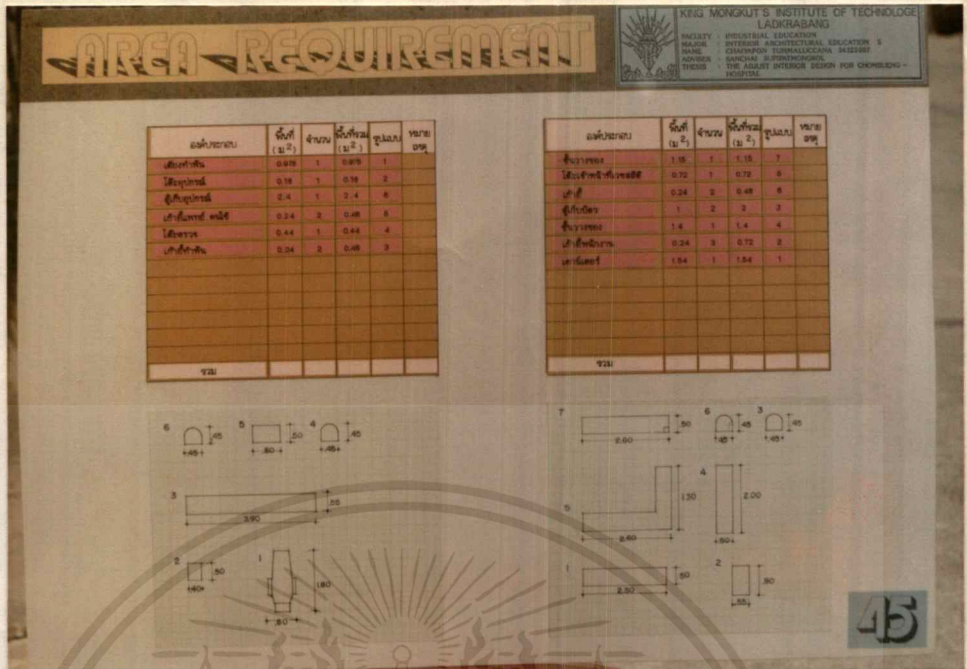 AREA REQUIREMENT
KING MONGKUT'S INSTITUTE OF TECHNOLOGE
LADKRABANG
FACULTY : INDUSTRIAL EDUCATION
MAJOR : INTERIOR ARCHITECTURAL EDUCATION 5
NAME :
ADVISER : SANCHAI
THESIS : THE ADJUST INTERIOR DESIGN FOR CHOMBUENG -
HOSPITAL
องค์ประกอบ พื้นที่ (ม2) จำนวน พื้นที่รวม (ม2) รูปแบบ หมายเหตุ
เตียงทำฟัน 0.975 1 0.975 1
โต๊ะอุปกรณ์ 0.16 1 0.16 2
ตู้เก็บอุปกรณ์ 2.4 1 2.4 6
เก้าอี้แพทย์ คนไข้ 0.24 2 0.48 5
โต๊ะตรวจ 0.44 1 0.44 4
เก้าอี้ทำฟัน 0.24 2 0.48 3
รวม
องค์ประกอบ พื้นที่ (ม2) จำนวน พื้นที่รวม (ม2) รูปแบบ หมายเหตุ
ชั้นวางของ 1.15 1 1.15 7
โต๊ะเจ้าหน้าที่เวชสถิติ 0.72 1 0.72 6
เก้าอี้ 0.24 2 0.48 5
ตู้เก็บบัตร 1 2 2 2
ชั้นวางของ 1.4 1 1.4 4
เก้าอี้พนักงาน 0.24 3 0.72 2
เคาน์เตอร์ 1.54 1 1.54 1
รวม
6 .45 .45 5 .50 .80 4 .45 .45
3 .55 3.90
2 .50 .40 1 1.80 .60
7 .50 2.60 6 .45 .45 3 .45 .45
5 1.50 2.60 4 2.00 .50
1 .50 2.50 2 .90 .55
45